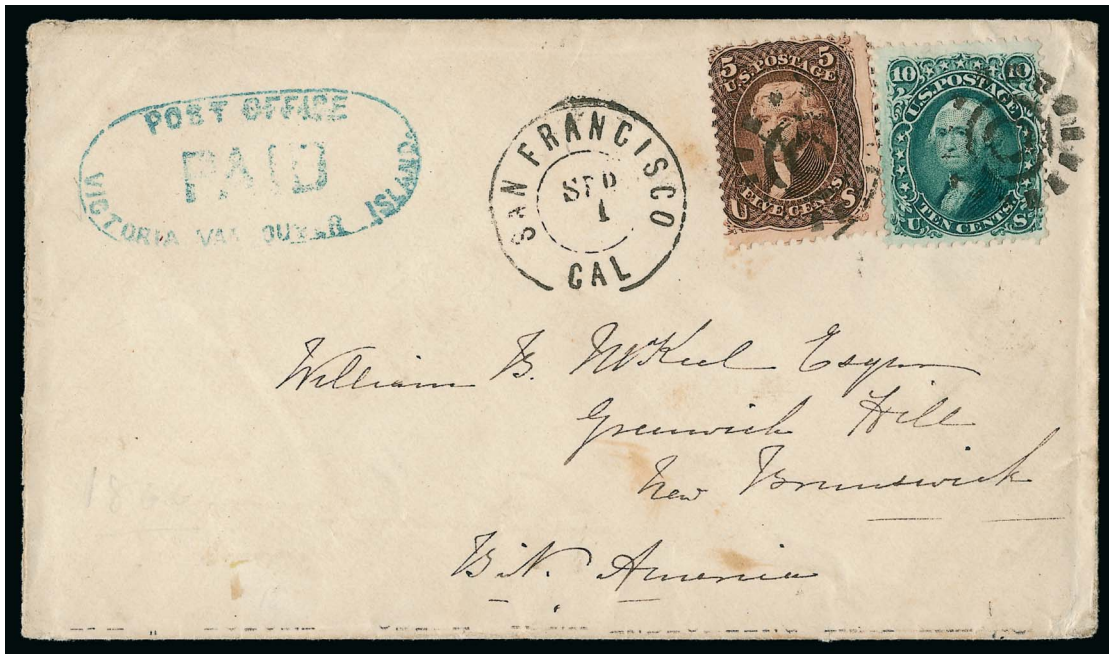 POST OFFICE
PAID
VICTORIA VAN OUVER ISLAND.
SAN FRANCISCO
SEP
1
CAL
5 5
U.S. POSTAGE
FIVE CENTS
U S
10 10
U.S. POSTAGE
TEN CENTS
U S
William B. McKeel Esqr
Greenwich Hill
New Brunswick
B.N. America
1866